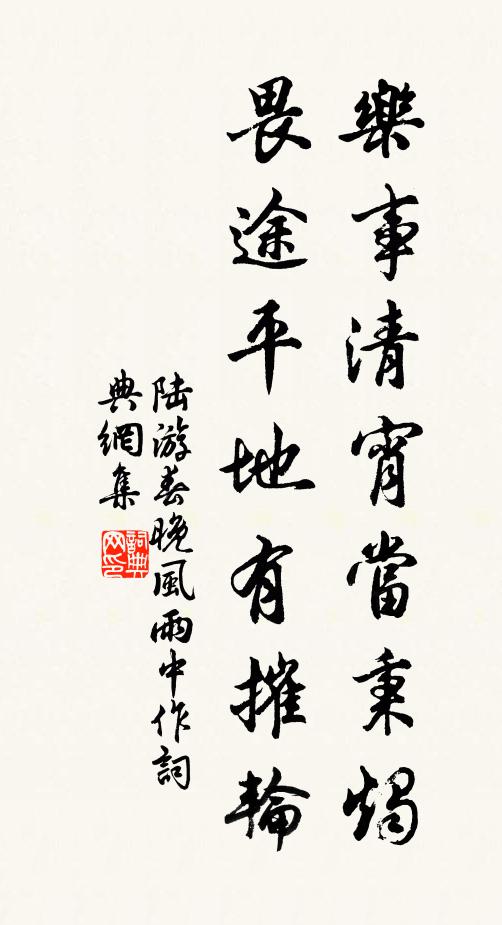 樂事清宵當秉燭
畏途平地有摧輪
陸游春晚風雨中作詞
典網集
詞典网印